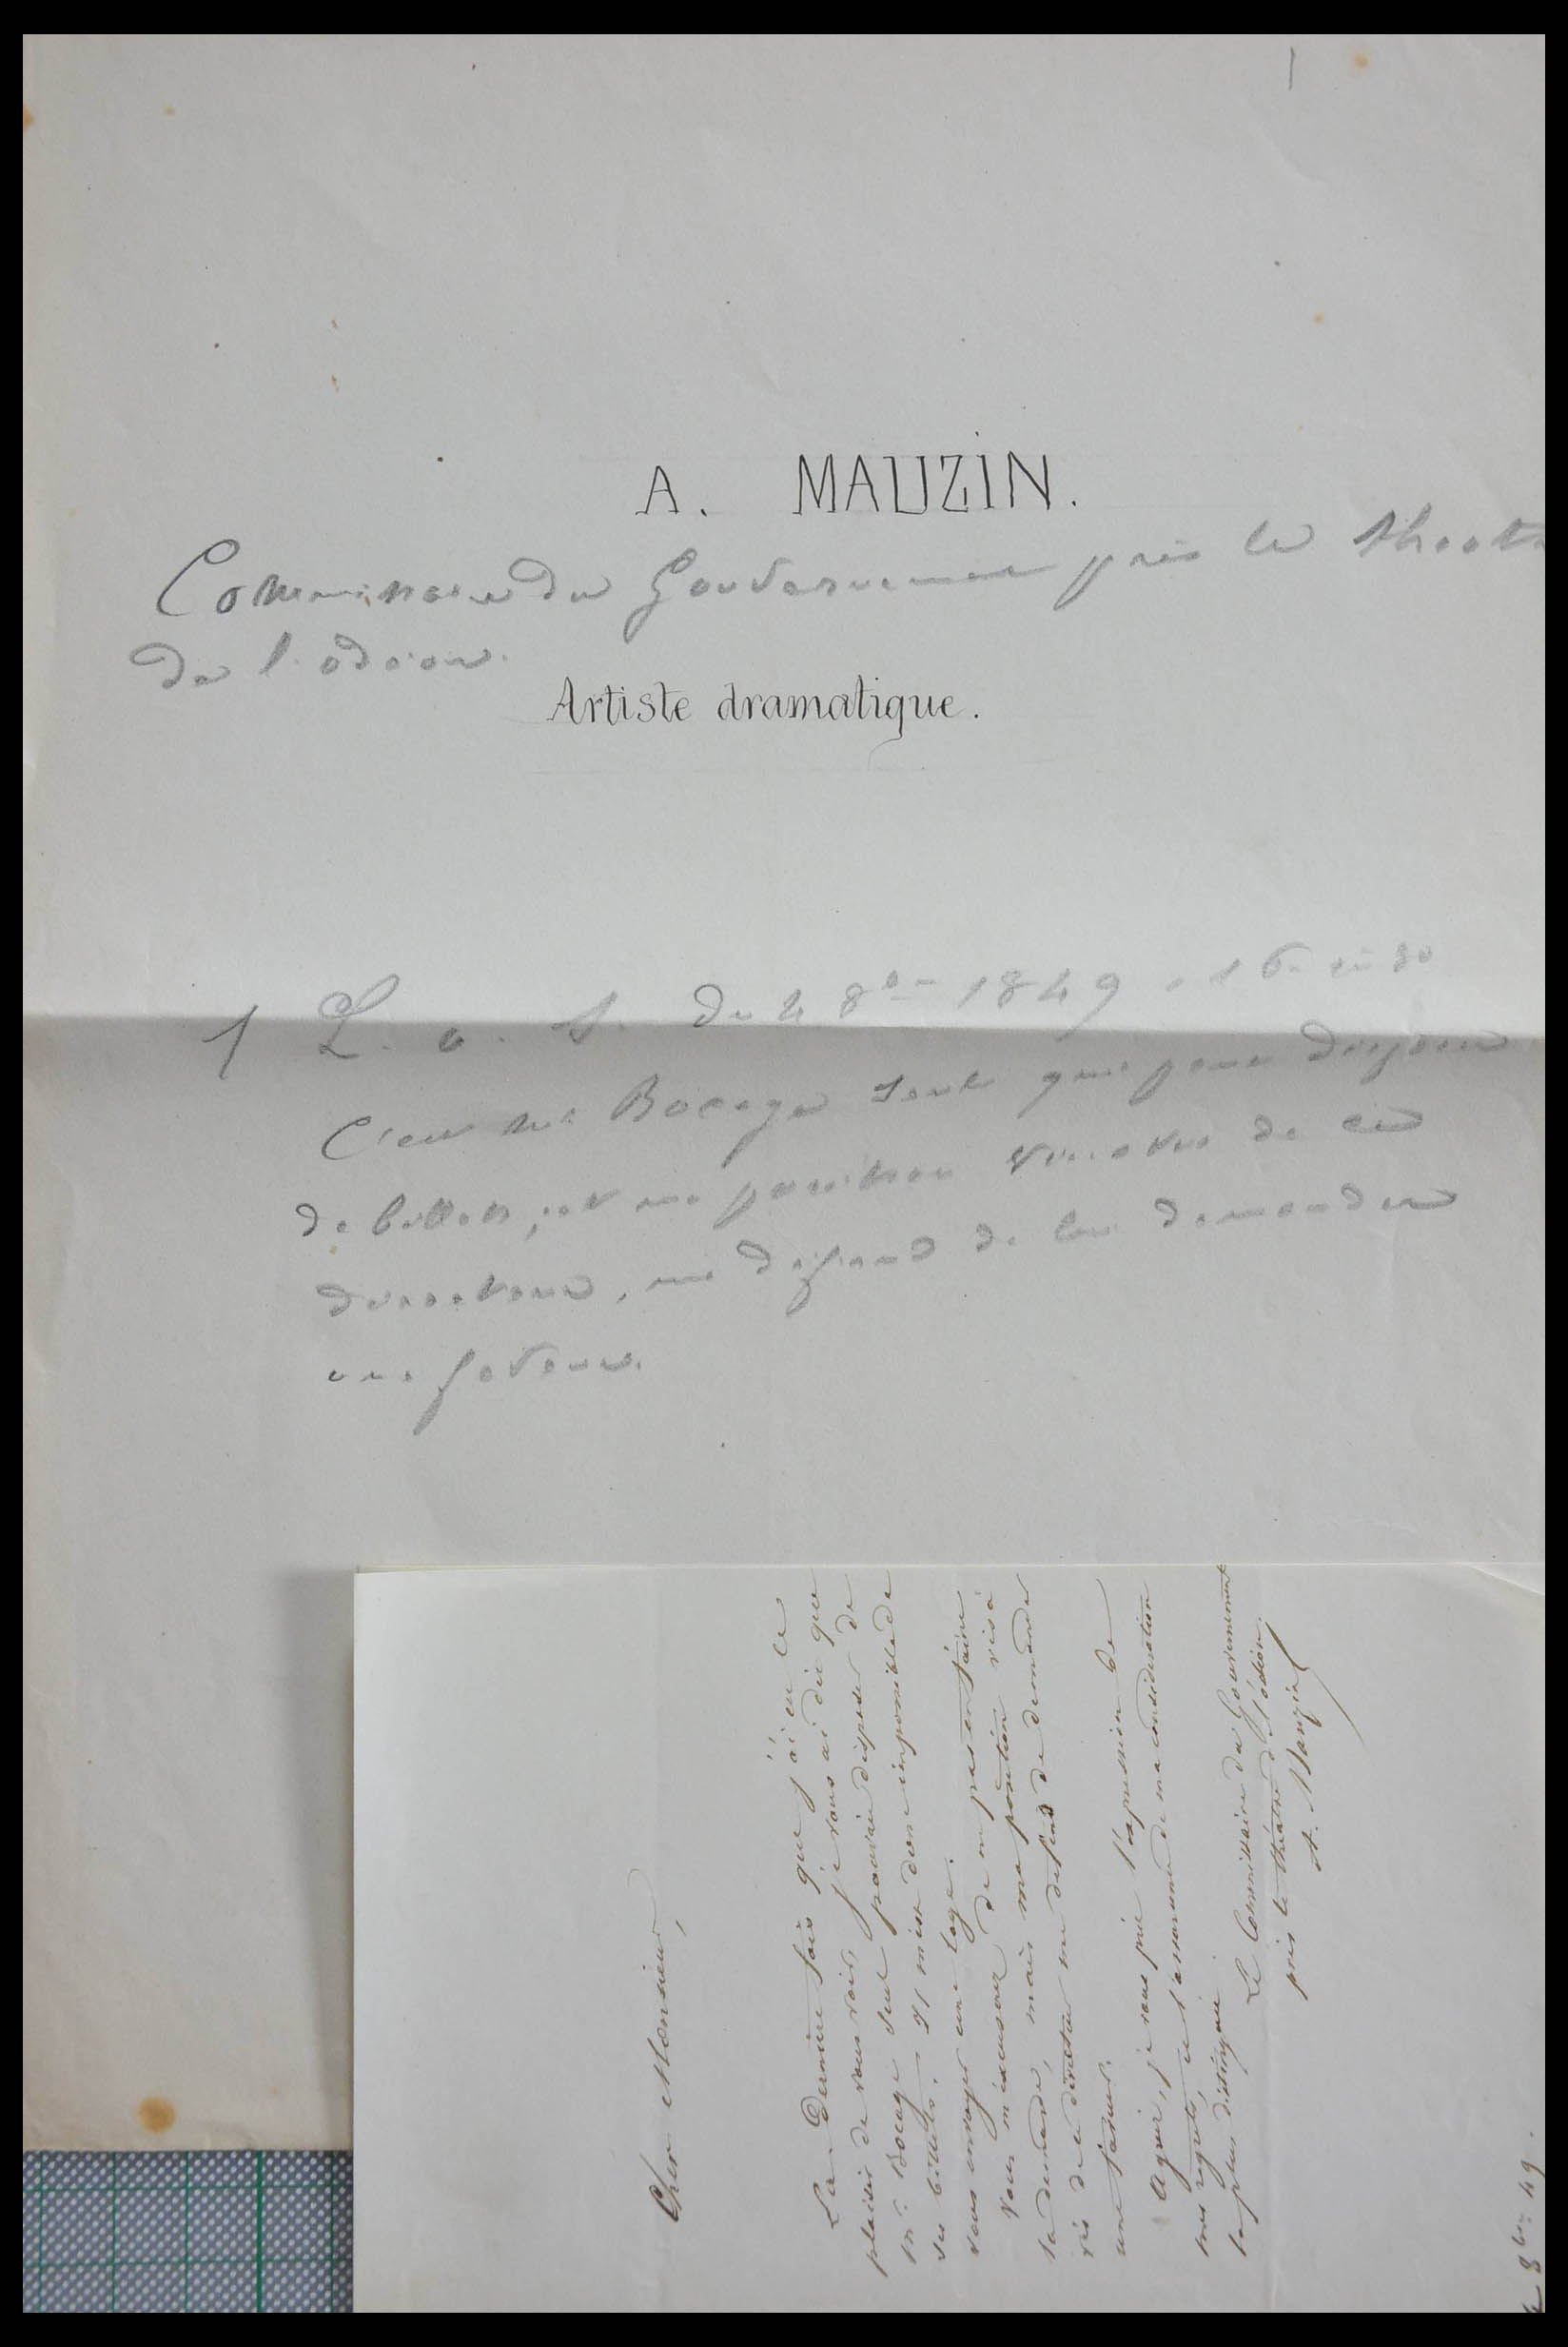 A. MAUZIN.
Commissaire du Gouvernement près le theatre
de l'odéon.
Artiste dramatique.
1 L. a. S. du 4 8bre 1849, 1 p. in 8o
C'est Mr Bocage seul qui peut disposer
de billets, et ma position vis à vis de ce
directeur, me défend de lui demander
une faveur.
Cher Monsieur,
La dernière fois que j'ai eu le
plaisir de vous voir, je vous ai dit que
Mr. Bocage seul pouvait disposer de
ses billets. Il m'est donc impossible de
vous envoyer une loge.
Vous m'excuserez de ne pas en faire
la demande, mais ma position vis à
vis de ce directeur me défend de demander
une faveur.
Agréez, je vous prie l'expression de
mes regrets, et l'assurance de ma considération
la plus distinguée
Le Commissaire du Gouvernement
près le théâtre de l'odéon.
A. Mauzin
4 8bre 49.